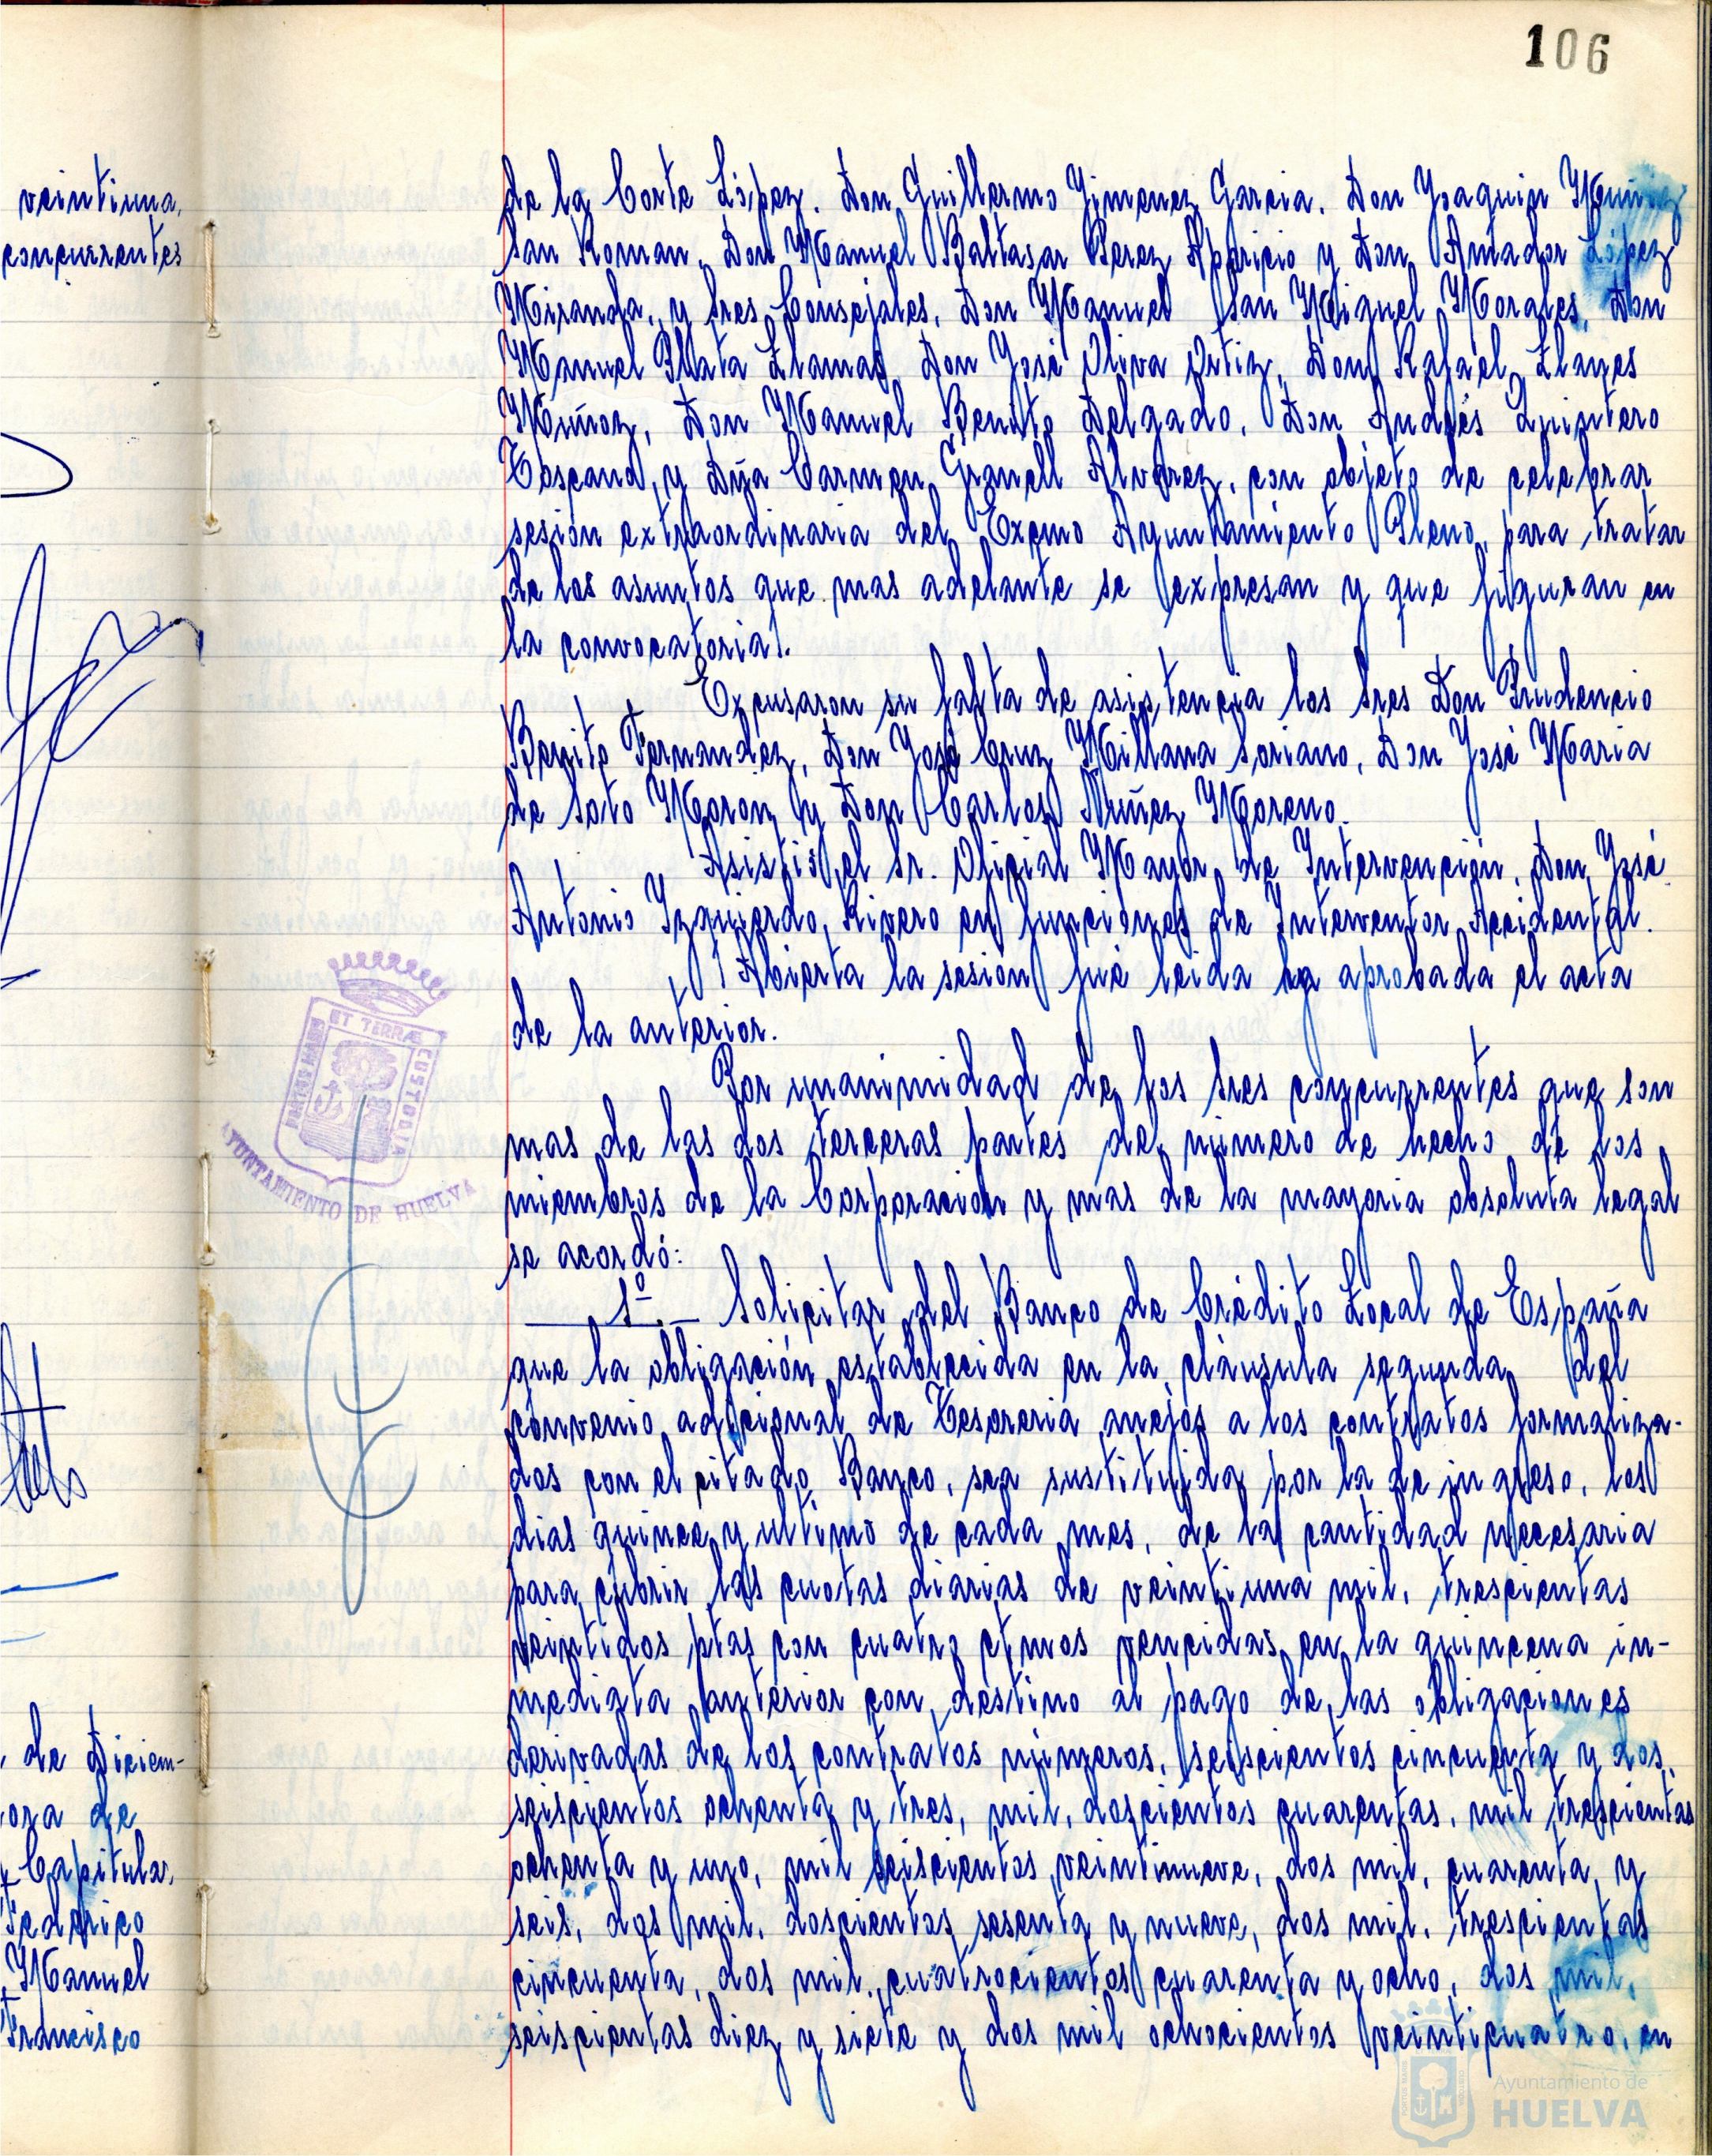 106
veintiuna,
concurrentes
de la Corte López. Don Guillermo Jimenez Garcia. Don Joaquin Muñiz
San Roman, Don Manuel Baltasar Perez Aparicio y Don Amador López
Miranda, y Sres Consejales, Don Manuel San Miguel Morales, Don
Manuel Plata Llamas, Don José Oliva Ortiz, Don Rafael Llanes
Muñoz, Don Manuel Benito Delgado, Don Andrés Quintero
Toscano, y Dña Carmen Granell Alvarez, con objeto de celebrar
sesión extraordinaria del Excmo Ayuntamiento Pleno, para tratar
de los asuntos que mas adelante se expresan y que figuran en
la convocatoria.
Excusaron su falta de asistencia los Sres Don Prudencio
Benito Fernandez, Don José Cruz Millana Soriano, Don José Maria
de Soto Moron y Don Carlos Nuñez Moreno.
Asistió el Sr. Oficial Mayor de Intervención, Don José
Antonio Izquierdo Rivero en funciones de Interventor Accidental.
Abierta la sesión fué leida y aprobada el acta
de la anterior.
Por unanimidad de los Sres concurrentes que son
mas de las dos terceras partes del número de hecho de los
miembros de la Corporación y mas de la mayoria absoluta legal
se acordó:
1º.- Solicitar del Banco de Crédito Local de España
que la obligación establecida en la cláusula segunda del
convenio adicional de Tesoreria anejos a los contratos formaliza-
dos con el citado Banco, sea sustituida por la de ingreso, los
dias quince y ultimo de cada mes, de la cantidad necesaria
para cubrir las cuotas diarias de veintiuna mil, trescientas
veintidos ptas con cuatro ctmos vencidas en la quincena in-
mediata anterior con destino al pago de las obligaciones
derivadas de los contratos números, seiscientos cincuenta y dos,
seiscientos ochenta y tres, mil, doscientos cuarentas, mil trescientas
ochenta y uno, mil seiscientos veintinueve, dos mil, cuarenta y
seis, dos mil, doscientos sesenta y nueve, dos mil, trescientas
cincuenta, dos mil, cuatrocientos cuarenta y ocho, dos mil,
seiscientas diez y siete y dos mil ochocientos veinticuatro, en
ET TERRAE CUSTODIA
AYUNTAMIENTO DE HUELVA
de Diciem-
ora de
Capitular,
Federico
Manuel
Francisco
Ayuntamiento de
HUELVA